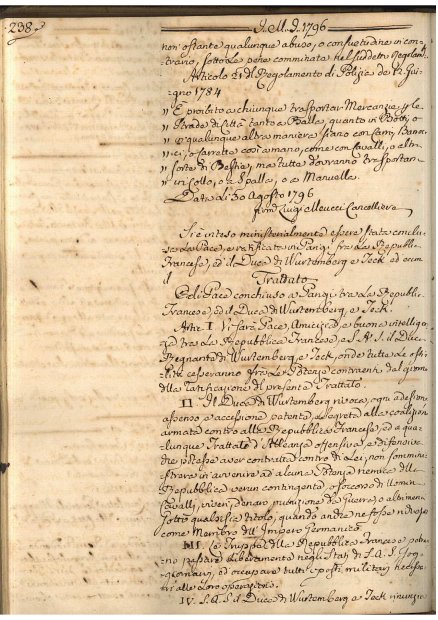 238
J. M. J. 1796
non ostante qualunque abuso, o consuetudine in con-
trario, sotto le pene comminate nel suddetto Regolam.
Articolo 21 del Regolamento di Polizia de 12 Giu-
gno 1784
È proibito a chiunque trasportar Mercanzie p le
Strade di Città tanto a Balle, quanto in
o p qualunque altra maniera siano con Cami,
o Carrette così a mano, come con Cavalli, o altre
sorte di Bestie, ma tutte dovranno trasportar
in Collo, o a Spalla, o a Manuella.
Data li 30 Agosto 1796
firm. Luigi Meucci Cancelliere
Si è inteso ministerialmente essere stata conclu-
sa la Pace, e ratificata in Parigi fra la Repubblica
Francese, ed il Duca di Wurtemberg e Teck ed
il Trattato
Di Pace conchiuso a Parigi tra la Repubblica
Francese, ed il Duca di Wurtemberg, e Teck.
Artic. I. Vi sarà Pace, Amicizia, e buona intelligen-
za tra la Repubblica Francese, e S. A. S. il Duca
Regnante di Wurtemberg, e Teck, onde tutte le osti-
lità cesseranno fra le Potenze contraenti dal giorno
della ratificazione di presente Trattato.
II. Il Duca di Wurtemberg rivoca ogni adesione,
assenso, e accessione patente, e segreta alla coalizione
armata contro alla Repubblica Francese, ed a qua-
lunque Trattato d'Alleanza offensiva, e difensiva
che potesse aver contratta contro di Lei, non sommini-
strerà in avvenire ad alcuna Potenza nemica della
Repubblica verun contingente, o soccorso d'uomini
Cavalli, viveri, denaro, munizione da Guerra, o altrimenti
sotto qualsisia titolo, quando anche ne fosse richiesto
come Membro dell'Impero Germanico.
III. Le Truppe della Repubblica Francese potran-
no passare liberamente negli Stati di S. A. S. sog-
giornarvi, ed occupare tutti i posti militari necessa-
ri alle loro operazioni.
IV. S. A. S. il Duca di Wurtemberg e Teck rinunzia